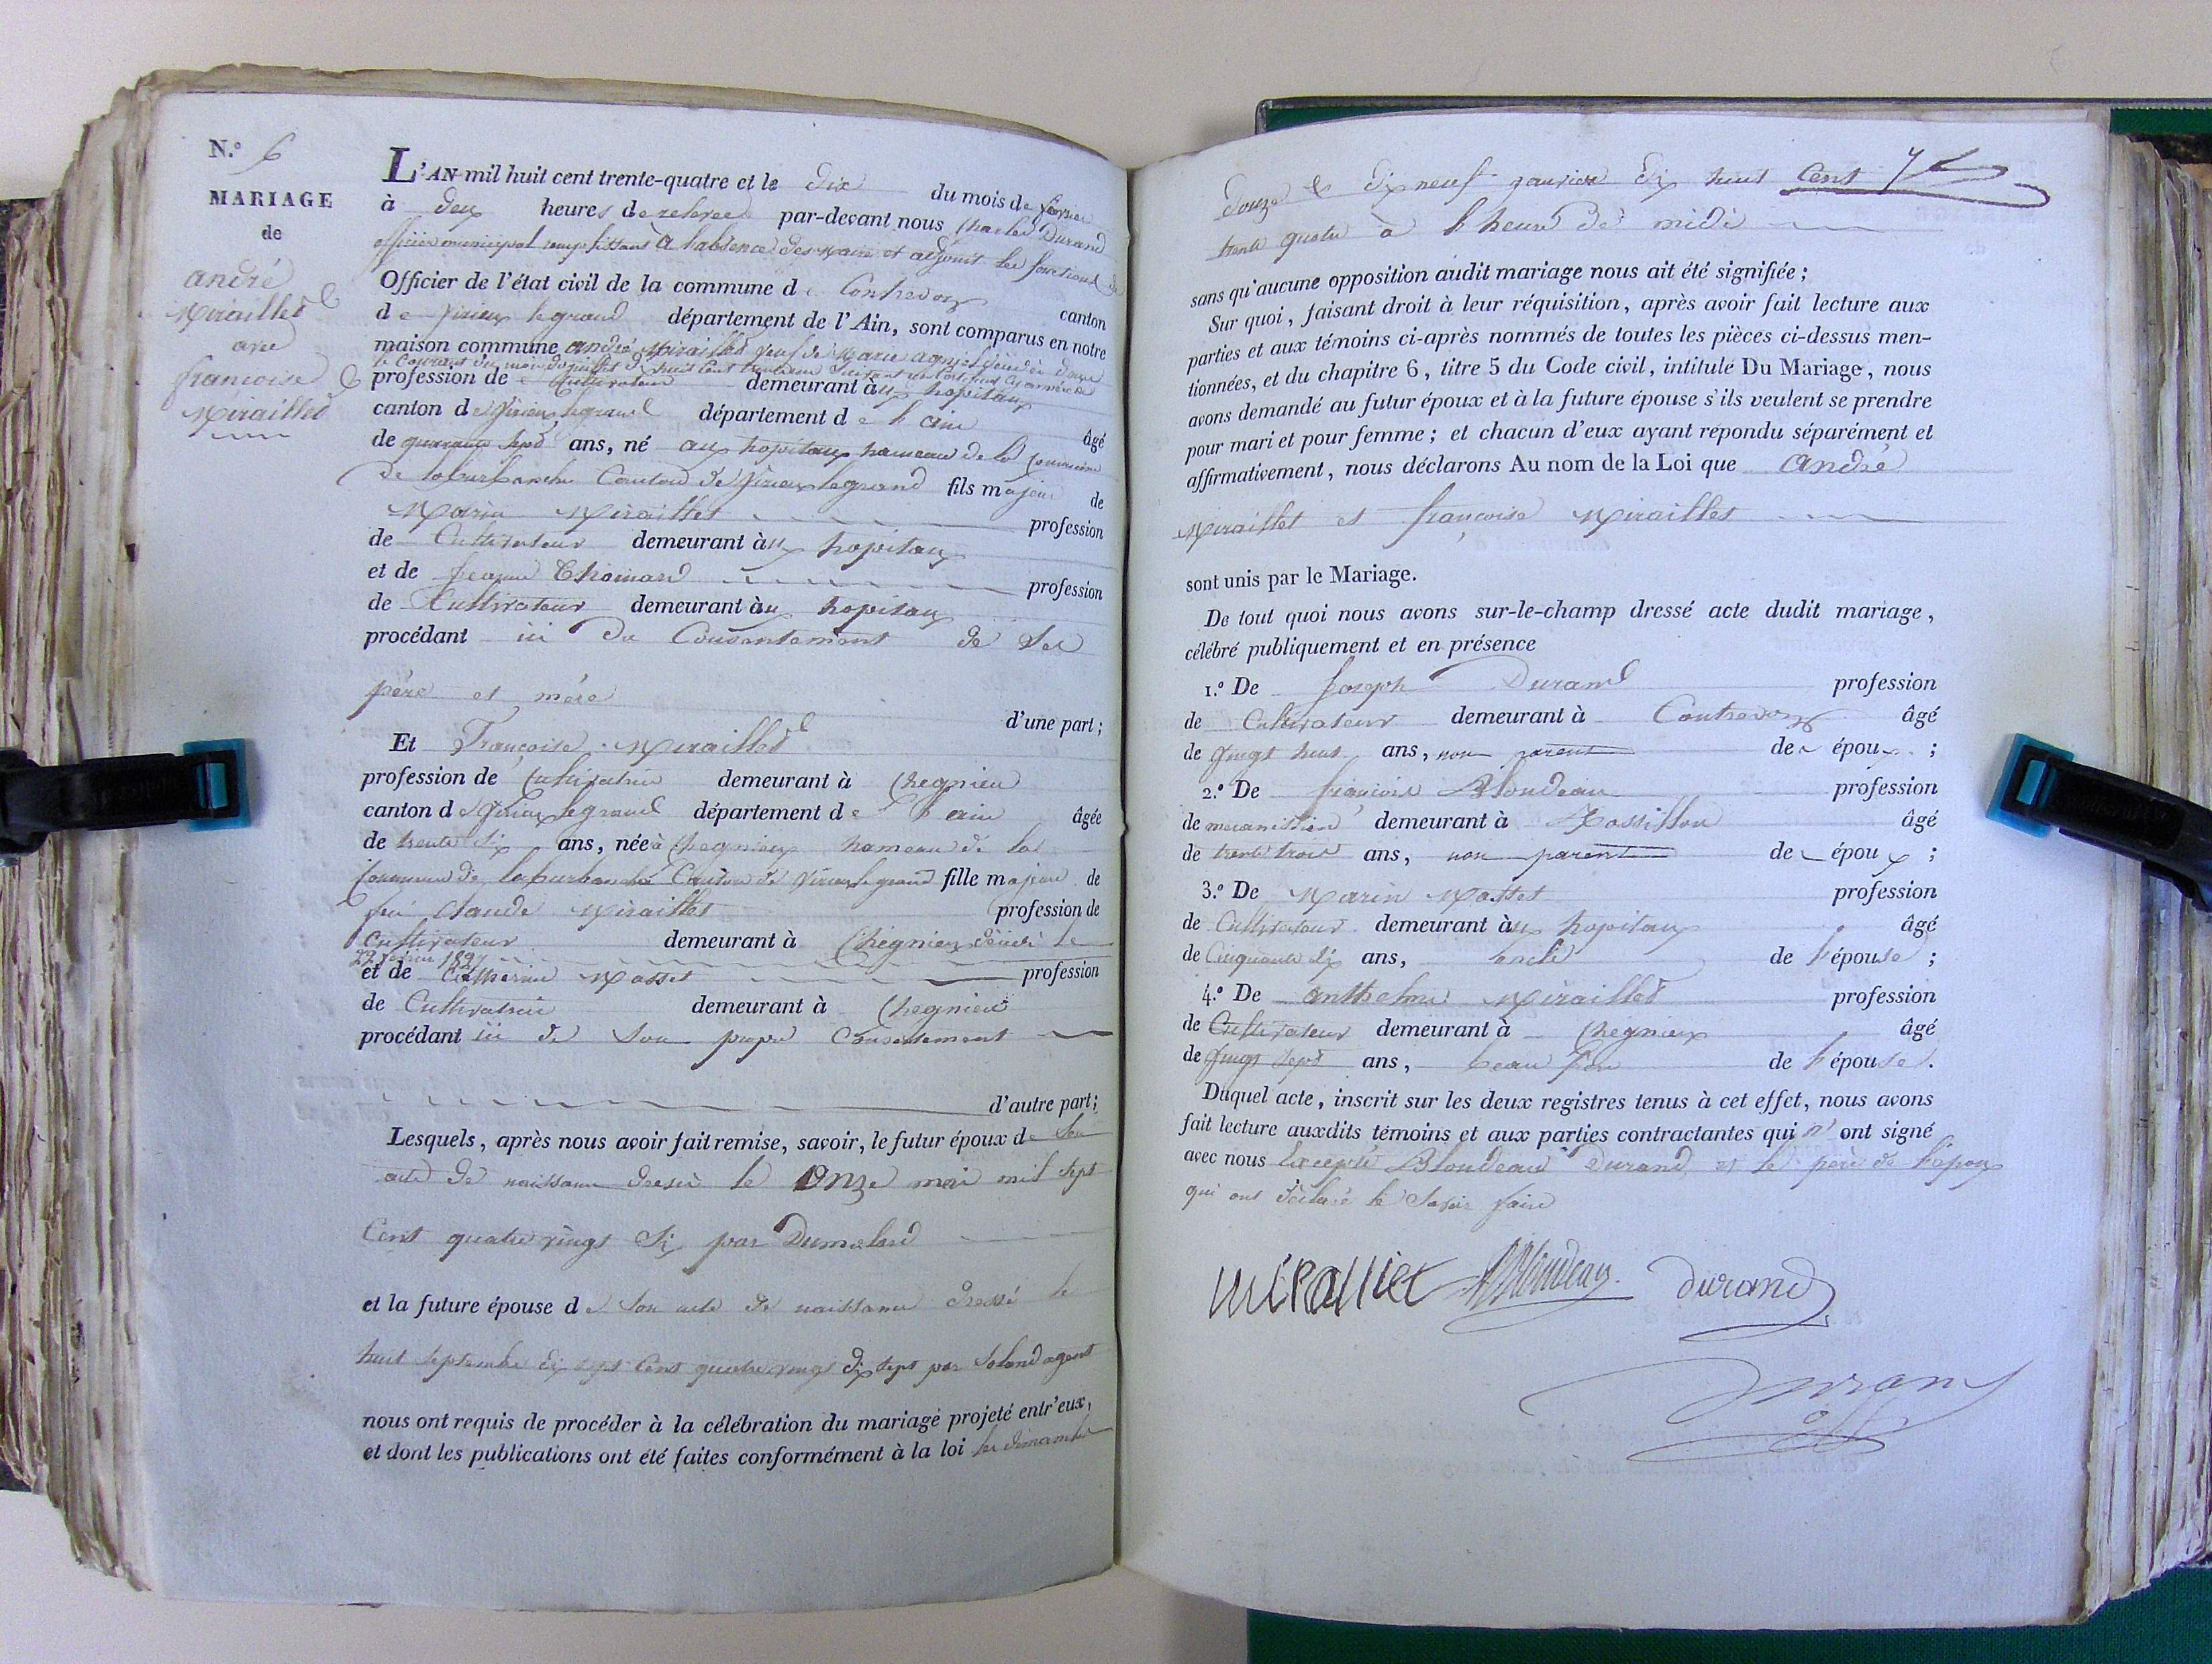 N.º 6
MARIAGE
de
andré
Miraillet
avec
francoise
Miraillet
L'AN mil huit cent trente-quatre et le dix du mois de fevrier
à deux heures de relevée par-devant nous Charles Durand
officier municipal remplissant à l'absence des maire et adjoint les fonctions de
Officier de l'état civil de la commune de Contrevoz canton
de virieux legrand département de l'Ain, sont comparus en notre
maison commune andré Miraillet veuf de Marie
profession de Cultivateur demeurant aux hopitaux
canton de virieux legrand département de l'ain âgé
de quarante sept ans, né aux hopitaux hameau de la commune
de laburbanche Canton de virieux legrand fils majeur de
Marin Miraillet profession
de Cultivateur demeurant aux hopitaux
et de jeanne Thomard profession
de Cultivateur demeurant aux hopitaux
procédant ici du Consentement de ses
père et mère
d'une part;
Et Françoise Miraillet
profession de Cultivatrice demeurant à Chegnieu
canton de virieux legrand département de l'ain âgée
de trente six ans, née à Chegnieux hameau de la
Commune de laburbanche Canton de virieux legrand fille majeure de
feu Claude Miraillet profession de
Cultivateur demeurant à Chegnieux décédé le
22 février
et de Catherine Masset profession
de Cultivatrice demeurant à Chegnieu
procédant ici de son propre Consentement
d'autre part;
Lesquels, après nous avoir fait remise, savoir, le futur époux de son
acte de naissance dressé le onze mai mil sept
Cent quatre vingt six par Dumolard
et la future épouse de son acte de naissance dressé le
huit septembre dix sept Cent quatre vingt dix sept par agent
nous ont requis de procéder à la célébration du mariage projeté entr'eux,
et dont les publications ont été faites conformément à la loi les dimanches
douze & dix neuf janvier dix huit Cent
trente quatre à l'heure de midi
sans qu'aucune opposition audit mariage nous ait été signifiée;
Sur quoi, faisant droit à leur réquisition, après avoir fait lecture aux
parties et aux témoins ci-après nommés de toutes les pièces ci-dessus men-
tionnées, et du chapitre 6, titre 5 du Code civil, intitulé Du Mariage, nous
avons demandé au futur époux et à la future épouse s'ils veulent se prendre
pour mari et pour femme; et chacun d'eux ayant répondu séparément et
affirmativement, nous déclarons Au nom de la Loi que André
Miraillet et françoise Miraillet
sont unis par le Mariage.
De tout quoi nous avons sur-le-champ dressé acte dudit mariage,
célébré publiquement et en présence
1.º De Joseph Durand profession
de Cultivateur demeurant à Contrevoz âgé
de vingt huit ans, non parent des époux;
2.º De françois Blondeau profession
de mecanissien demeurant à Rossillon âgé
de trente trois ans, non parent des époux;
3.º De Marin Masset profession
de Cultivateur demeurant aux hopitaux âgé
de Cinquante six ans, oncle de l'épouse;
4.º De anthelme Miraillet profession
de Cultivateur demeurant à Chegnieux âgé
de vingt sept ans, beau frere de l'épouse.
Duquel acte, inscrit sur les deux registres tenus à cet effet, nous avons
fait lecture auxdits témoins et aux parties contractantes qui n'ont signé
avec nous Excepté Blondeau Durand et le père de l'époux
qui ont déclaré le savoir faire
miralliet Blondeau durand
Durand
off